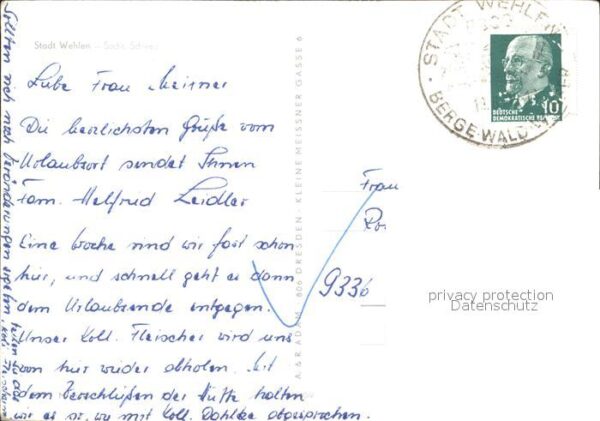 Stadt Wehlen – Sächs. Schweiz
Liebe Frau Meisner
Die herzlichsten Grüße vom
Urlaubsort sendet Ihnen
Fam. Helfried Leidler
Eine Woche sind wir fast schon
hier, und schnell geht es dann
dem Urlaubsende entgegen.
Unser Koll. Fleischer wird uns
von hier wieder abholen. Mit
dem Verschließen der Hütte halten
wir es so, wie mit Koll. Dahlke abgesprochen.
Sollten sich noch Veränderungen ergeben,
teilen Sie das
Koll. Fleischer
A & R ADAM · 806 DRESDEN · KLEINE MEISSNER GASSE 6
STADT WEHLEN
BERGE · WALD
DEUTSCHE
DEMOKRATISCHE REPUBLIK
10
Frau
9336
privacy protection
Datenschutz